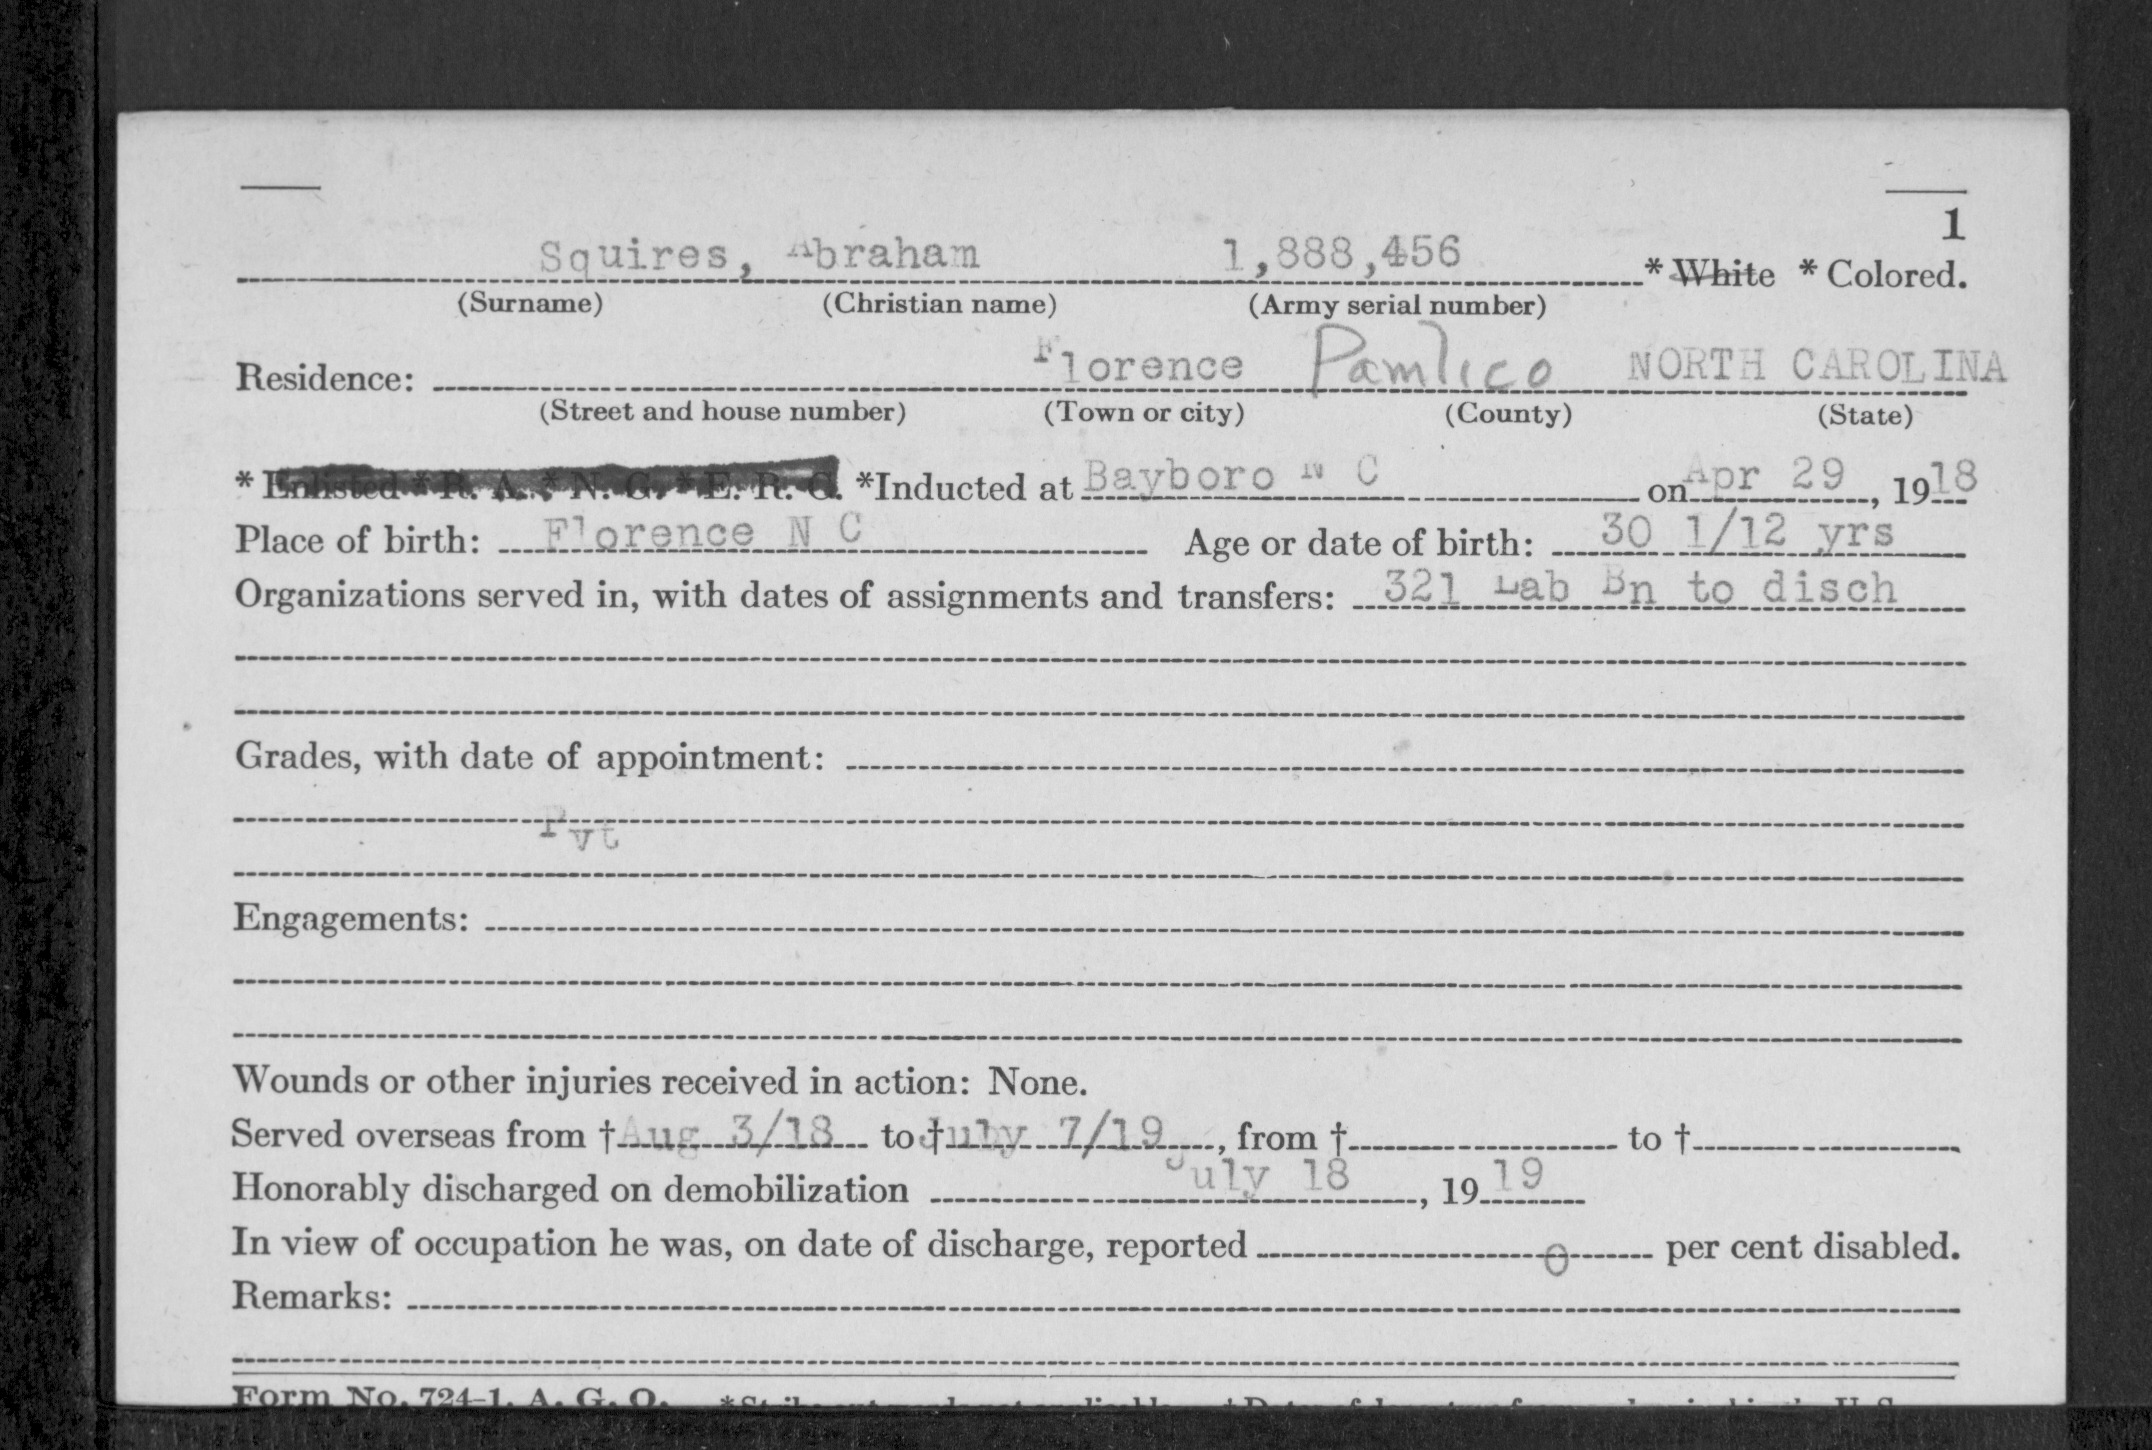 1
Squires, Abraham 1,888,456 * White * Colored.
(Surname) (Christian name) (Army serial number)
Residence: Florence Pamlico NORTH CAROLINA
(Street and house number) (Town or city) (County) (State)
* Enlisted * R. A. * N. G. * E. R. C. *Inducted at Bayboro N C on Apr 29, 1918
Place of birth: Florence N C Age or date of birth: 30 1/12 yrs
Organizations served in, with dates of assignments and transfers: 321 Lab Bn to disch
Grades, with date of appointment:
Pvt
Engagements:
Wounds or other injuries received in action: None.
Served overseas from † Aug 3/18 to † July 7/19, from † to †
Honorably discharged on demobilization July 18, 1919
In view of occupation he was, on date of discharge, reported 0 per cent disabled.
Remarks:
Form No. 724-1, A. G. O.